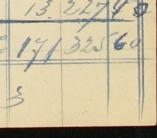 13.227 40
171 325 60
3